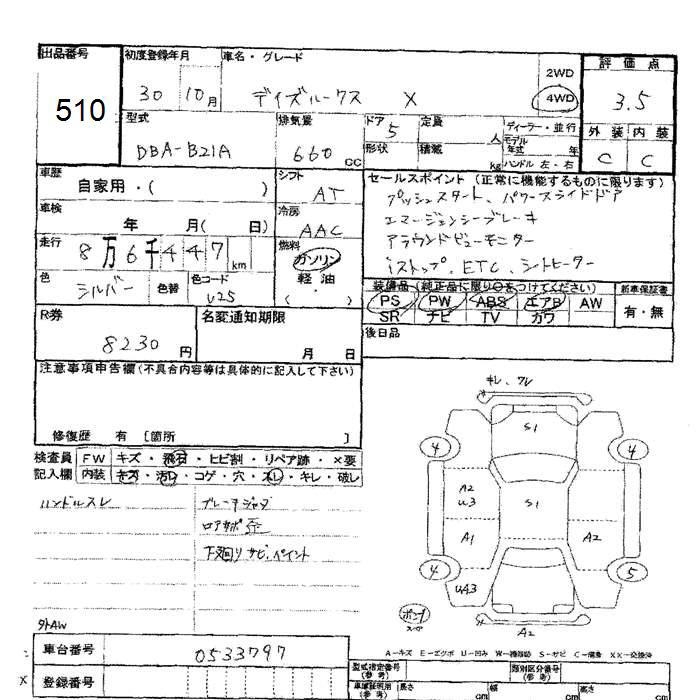 出品番号
510
初度登録年月
30 10月
車名・グレード
デイズルークス X
2WD
4WD
評価点
3.5
外装 内装
C C
型式
DBA-B21A
排気量
660 cc
ドア 5
定員 人
形状
積載 kg
ディーラー・並行
モデル年式 年
ハンドル 左・右
車歴
自家用・( )
シフト
AT
車検
年 月( 日)
冷房
AAC
走行
8万6千447 km
燃料
ガソリン
軽油
( )
色
シルバー
色替
色コード
U25
セールスポイント (正常に機能するものに限ります)
プッシュスタート、パワースライドドア
エマージェンシーブレーキ
アラウンドビューモニター
iストップ、ETC、シートヒーター
装備品 (純正品に限り○をつけてください)
PS PW ABS エアB AW
SR ナビ TV カワ
新車保証書
有・無
後日品
R券
8230円
名変通知期限
月 日
注意事項申告欄(不具合内容等は具体的に記入して下さい)
修復歴 有 [箇所 ]
検査員記入欄
FW キズ・飛石・ヒビ割・リペア跡・×要
内装 キズ・汚レ・コゲ・穴・スレ・キレ・破レ
ハンドルスレ
ロアサポ歪
下廻りサビ、ペイント
外AW
キレ、ワレ
S1
4
4
A2
U3
S1
A1
A2
4
5
UA3
A2
A-キズ E-エクボ U-凹み W-補修跡 S-サビ C-腐食 XX-交換済
車台番号
0533797
登録番号
型式指定番号
(参考)
類別区分番号
(参考)
車庫証明用
(参考)
長さ cm
幅 cm
高さ cm